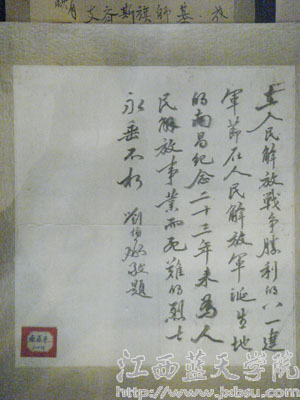 在人民解放戰爭勝利的八一建
軍節在人民解放軍誕生地
的南昌紀念二十三年来為人
民解放事業而死難的烈士
永垂不朽 劉伯承敬題
江西蓝天学院
http://www.jxbsu.com